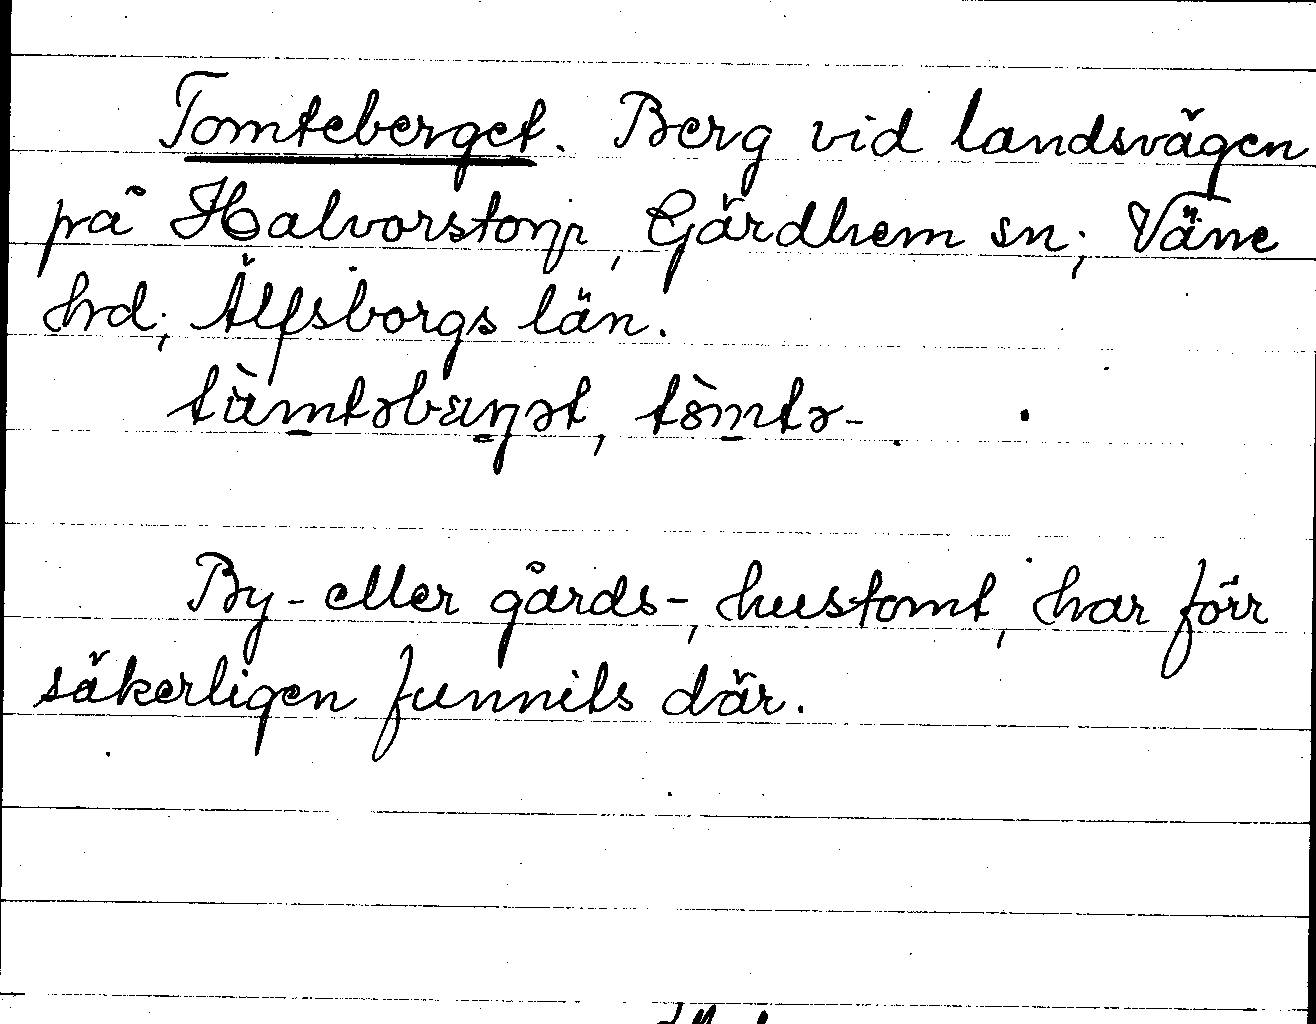 Tomteberget. Berg vid landsvägen
på Halvorstorp, Gärdhem sn; Väne
hrd; Älfsborgs län.
By- eller gårds-, hustomt, har förr
säkerligen funnits där.